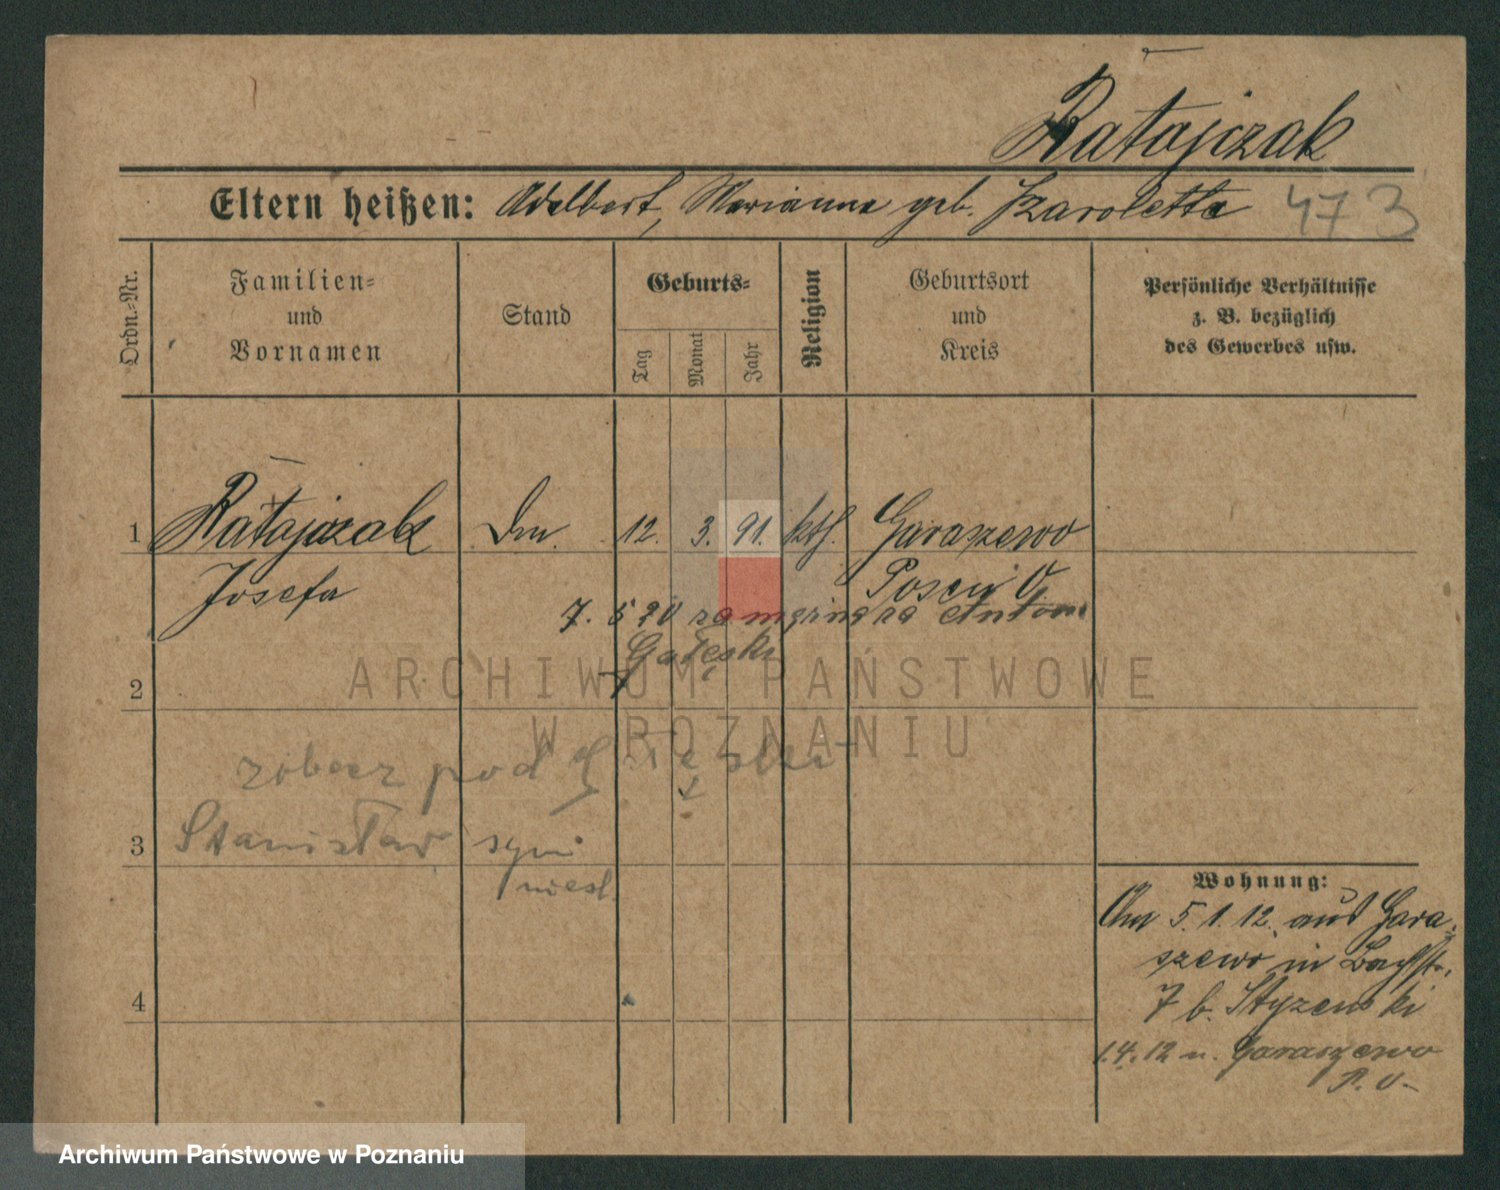 Ratajczak
Eltern heißen: Adelbert, Marianna geb. Szaroletta 473
Ordn.-Nr.
Familien-
und
Vornamen
Stand
Geburts-
Tag
Monat
Jahr
Religion
Geburtsort
und
Kreis
Persönliche Verhältnisse
z. B. bezüglich
des Gewerbes usw.
1 Ratajczak Dm. 12. 3. 91. kth. Garaszewo
Josefa Posen O
7. 5 20 za mężna za Antoni
Gałęski
2
zobacz pod
3 Stanisław syn
niesl.
4
Wohnung:
Am 5. 1. 12. aus Gara-
szewo in Bachstr.
7 b. Styzenski
1.4.12 n. Garaszewo
P. O-
ARCHIWUM PAŃSTWOWE
W POZNANIU
Archiwum Państwowe w Poznaniu